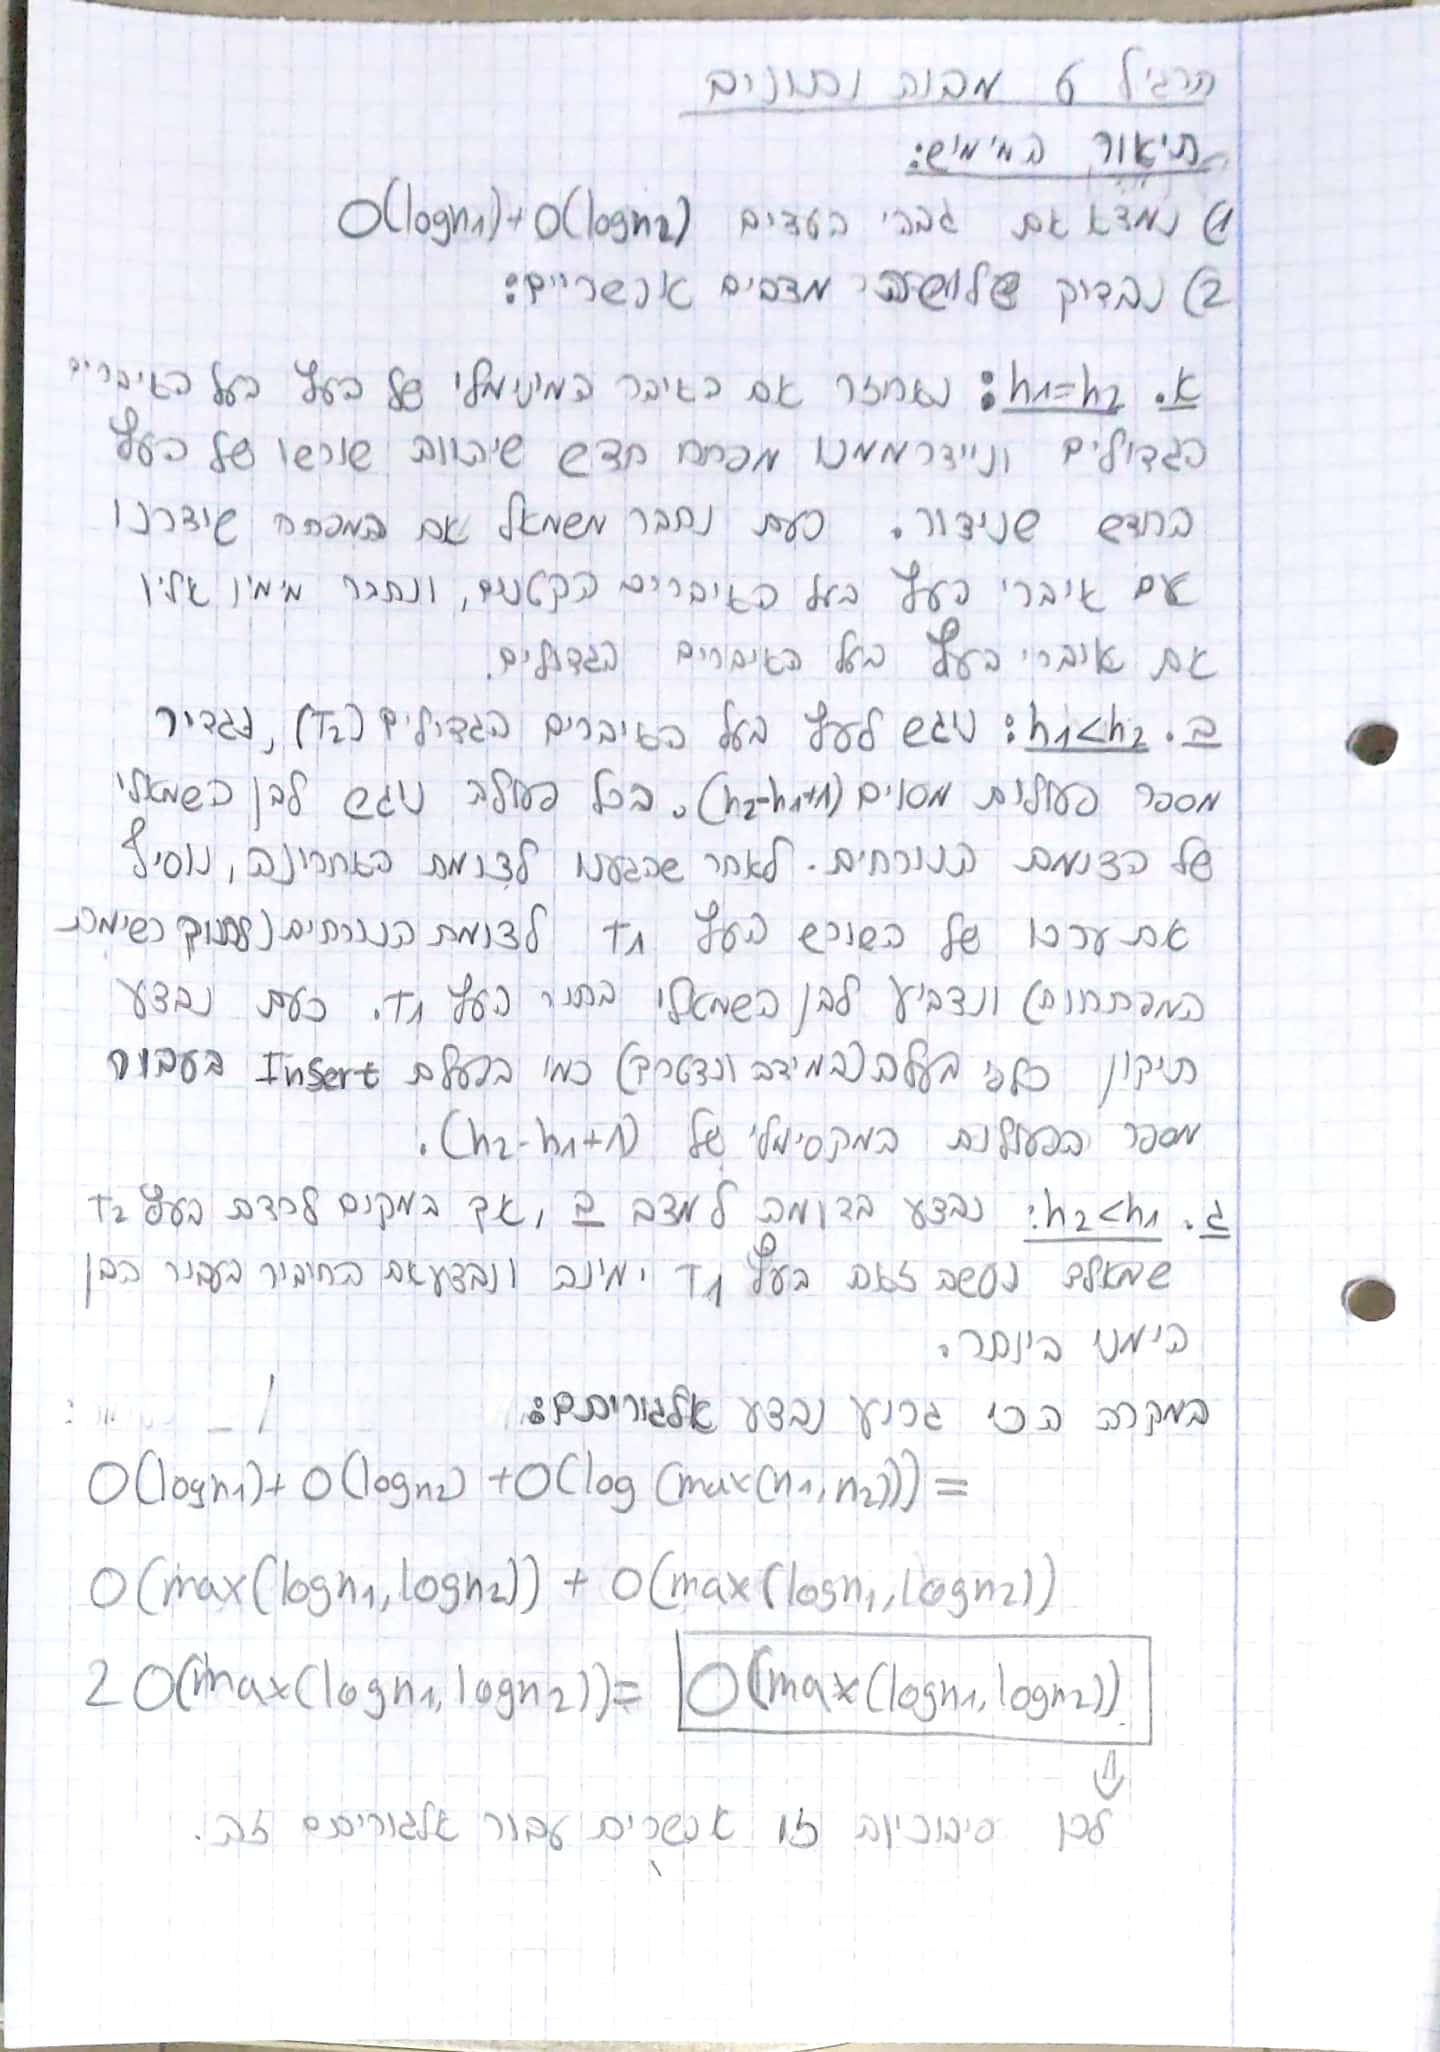 תרגיל 6 מבוה נתונים
תיאור המימוש:
1) נמצא את גבהי העצים O(logn1)+O(logn2)
2) נבדוק מצבים אפשריים:
א. h1=h2: נאחזר את האיבר המינימלי של העץ בעל האיברים
הגדולים ונייצר ממנו מפתח חדש שיהווה שורשו של העץ
החדש שניצור. כעת נחבר משמאל את המפתח שיצרנו
עם איברי העץ בעל האיברים הקטנים, ונחבר מימין אליו
את איברי העץ בעל האיברים הגדולים.
ב. h1<h2: ניגש לעץ בעל האיברים הגדולים (T2), נגדיר
מספר פעולות מסוים (h2-h1+1). בכל פעולה ניגש לבן השמאלי
של הצומת הנוכחים. לאחר שהגענו לצומת האחרונה, נוסיף
את ערכו של השורש העץ T1 לצומת הנוכחים (לתוך רשימת
המפתחות) ונצביע לבן השמאלי בתור העץ T1. כעת נבצע
תיקון כלפי מעלה (במידה ונצטרך) כמו בפעולת Insert בעבור
מספר הפעולות המקסימלי של (h2-h1+1).
ג. h2<h1: נבצע בדומה למצב ב, אך במקום לרדת בעץ T2
שמאלה נעשה זאת בעץ T1 ימינה ונבצע את החיבור בעבור הבן
הימני ביותר.
במקרה הכי גרוע נבצע אלגוריתם:
O(logn1)+O(logn2)+O(log(max(n1,n2)))=
O(max(logn1,logn2)) + O(max(logn1,logn2))
2O(max(logn1,logn2))= O(max(logn1,logn2))
⇓
לכן סיבוכיות זו אפשרית עבור אלגוריתם זה.